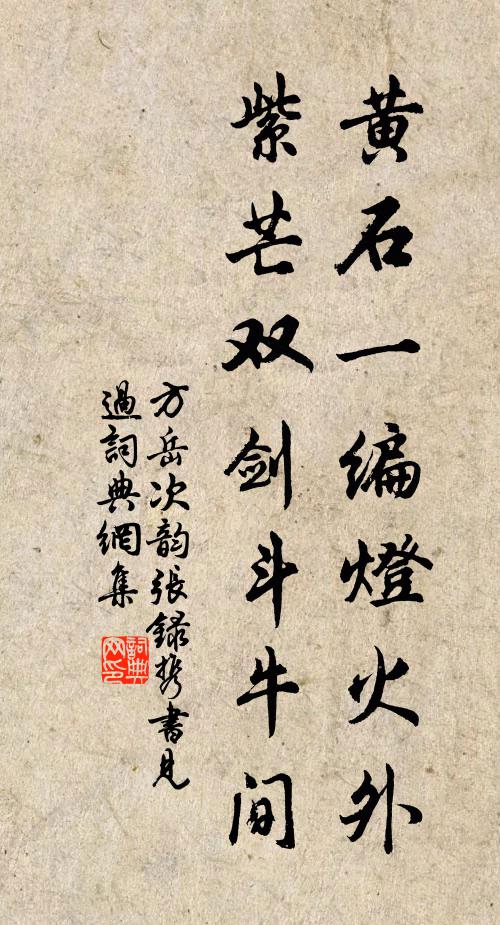 黄石一编燈火外
紫芒双剑斗牛间
方岳次韵張録携書見
過詞典網集
詞典网印